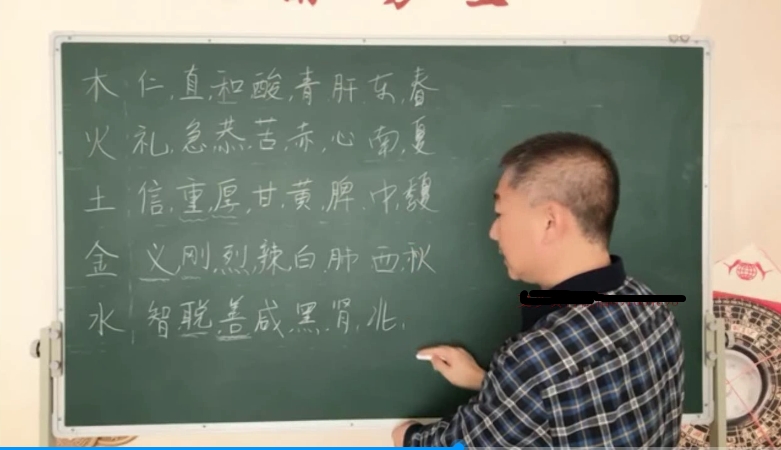 木 仁,直,和酸,青肝东,春
火 礼,急恭苦赤,心南,夏
土 信,重,厚,甘,黄,脾,中,
金 义,刚,烈,辣白,肺 西,秋
水 智聪善咸,黑,肾,北,